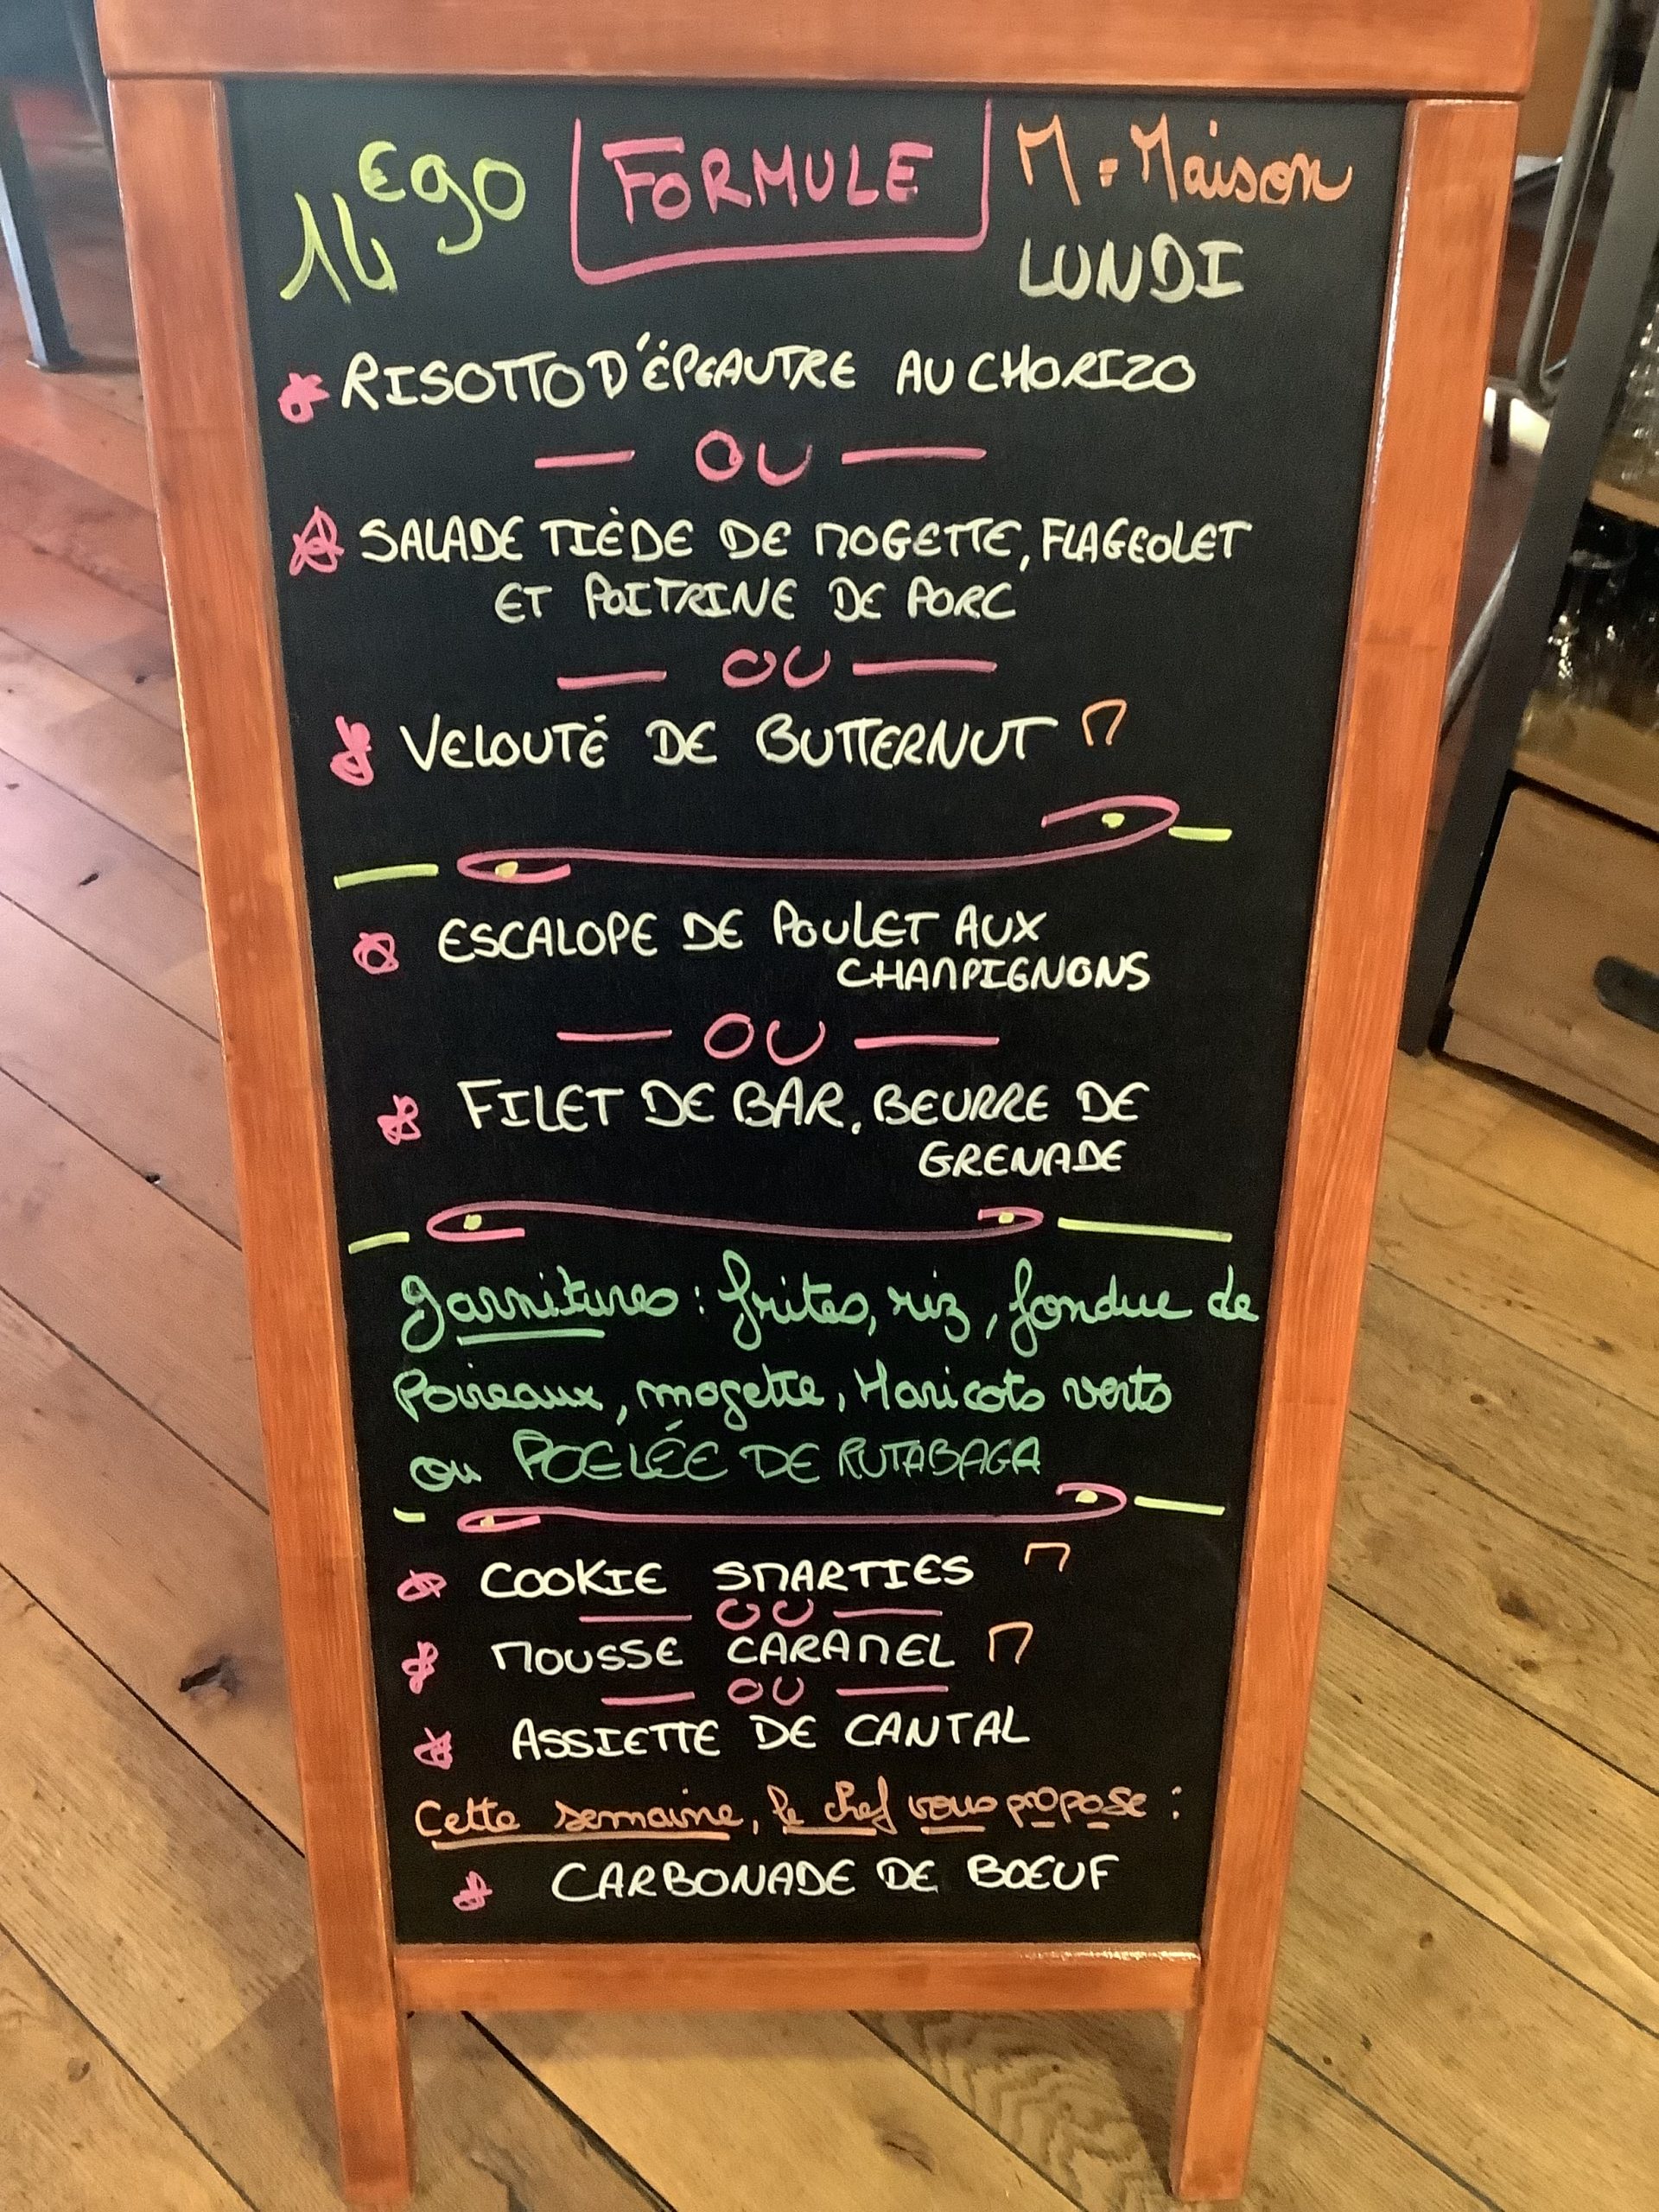 14€90 FORMULE M=Maison
LUNDI
RISOTTO D'ÉPEAUTRE AU CHORIZO
OU
SALADE TIÈDE DE MOGETTE, FLAGEOLET
ET POITRINE DE PORC
OU
VELOUTÉ DE BUTTERNUT M
ESCALOPE DE POULET AUX
CHAMPIGNONS
OU
FILET DE BAR, BEURRE DE
GRENADE
Garnitures : frites, riz, fondue de
Poireaux, mogette, Haricots verts
ou POELÉE DE RUTABAGA
COOKIE SMARTIES M
OU
MOUSSE CARAMEL M
OU
ASSIETTE DE CANTAL
Cette semaine, le chef vous propose :
CARBONADE DE BOEUF